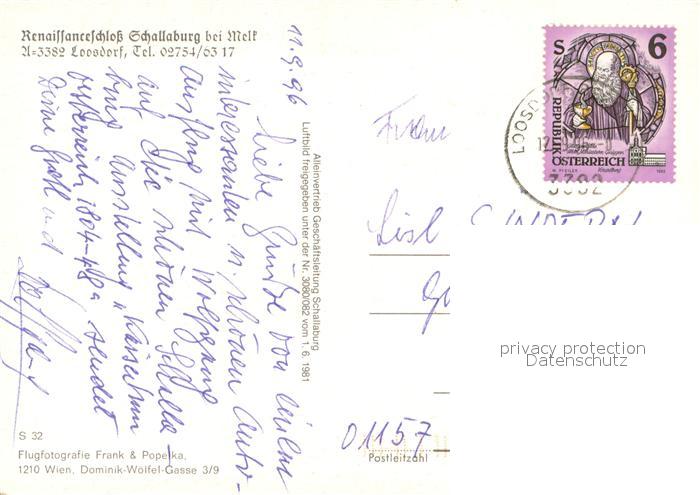 Renaissanceschloß Schallaburg bei Melk
A-3382 Loosdorf, Tel. 02754/63 17
11.9.96
Liebe Grüße von einem
interessanten u. schönen Auto-
ausflug mit Wolfgang
auf die schöne Schalla-
burg Ausstellung „Kaisertum
Österreich 1804-48“ sendet
Deine Gretl und
Wolfgang
Alleinvertrieb Geschäftsleitung Schallaburg
Luftbild freigegeben unter der Nr. 3080/082 vom 1. 6. 1981
S 32
Flugfotografie Frank & Popelka,
1210 Wien, Dominik-Wölfel-Gasse 3/9
S 6
REPUBLIK
ÖSTERREICH
LOOSD
3382
Frau
Lisl
01157
Postleitzahl
privacy protection
Datenschutz